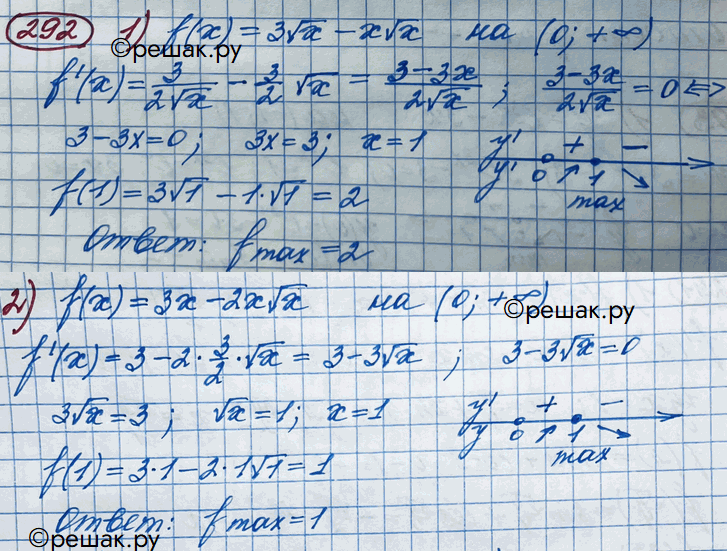 292 1) f(x) = 3√x − x√x на (0; +∞)
©решак.ру
f'(x) = 3/(2√x) − 3/2 √x = (3−3x)/(2√x) ; (3−3x)/(2√x) = 0 <=>
3−3x=0; 3x=3; x=1
y' + −
y' 0 ↗ 1 ↘
max
f(1) = 3√1 − 1·√1 = 2
Ответ: fmax = 2
©решак.ру
2) f(x) = 3x − 2x√x на (0; +∞)
©решак.ру
f'(x) = 3 − 2 · 3/2 · √x = 3 − 3√x ; 3−3√x=0
3√x = 3 ; √x = 1; x = 1
y' + −
y 0 ↗ 1 ↘
max
f(1) = 3·1 − 2·1√1 = 1
Ответ: fmax = 1
©решак.ру